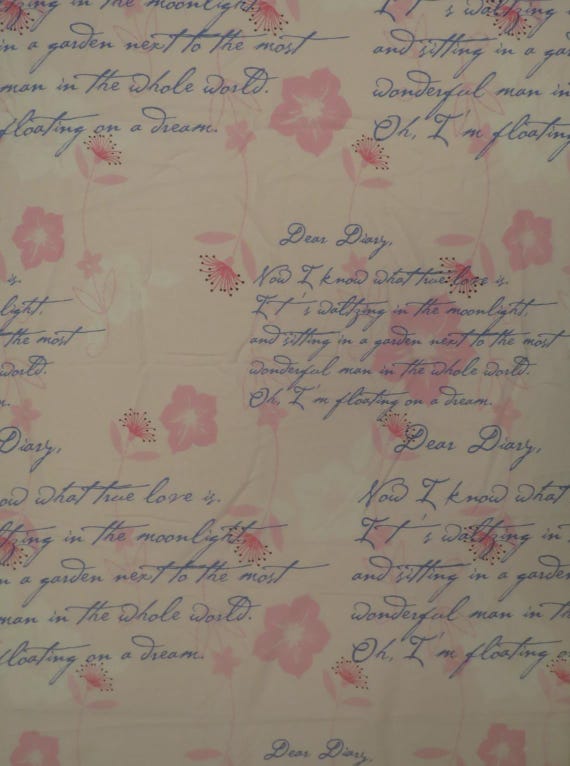 tzing in the moonlight,
in a garden next to the most
man in the whole world.
floating on a dream.
It's waltzing
and sitting in a gar
wonderful man in
Oh, I'm floating
is.
light,
the most
world.
m.
Dear Diary,
Now I know what true love is.
It's waltzing in the moonlight,
and sitting in a garden next to the most
wonderful man in the whole world.
Oh, I'm floating on a dream.
Diary,
ow what true love is.
ltzing in the moonlight,
n a garden next to the most
man in the whole world.
floating on a dream.
Dear Diary,
Now I know what
It's waltzing in
and sitting in a garden
wonderful man in the
Oh, I'm floating o
Dear Diary,